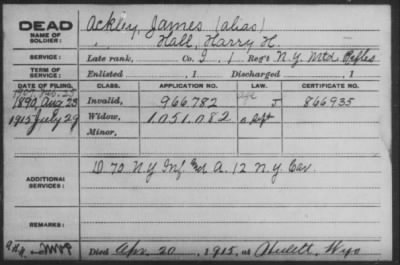 DEAD
NAME OF SOLDIER:
Ackley, James (alias)
" Hall, Harry H.
SERVICE:
Late rank, Co. I. 1 Reg't N.Y. Mtd. Rifles
TERM OF SERVICE:
Enlisted , 1 Discharged , 1
DATE OF FILING. CLASS. APPLICATION NO. LAW. CERTIFICATE NO.
1907, Feb. 25 age
1890, Aug 23 Invalid, 966.782 J 866935
1915 July 29 Widow, 1.051.082 a Sept
Minor,
ADDITIONAL SERVICES:
D 70 N.Y. Inf. and A. 12 N.Y. Cav.
REMARKS:
Died Apr. 20, 1915, at Hulett, Wyo